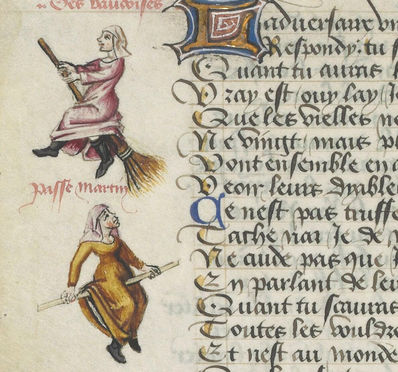 Des vaudoises
Passe Martin
Ladversaire
Respondy. tu s
Quant tu auras
Vray est ouy lay Je
Que les vielles ne
Ne vingt mais pl
Vont ensemble en
Veoir leurs dyable
Ce nest pas truffe
Tache nar Je de
Ne cuide pas que J
En parlant de leu
Quant tu scauras
Toutes les vouldre
Et nest au monde